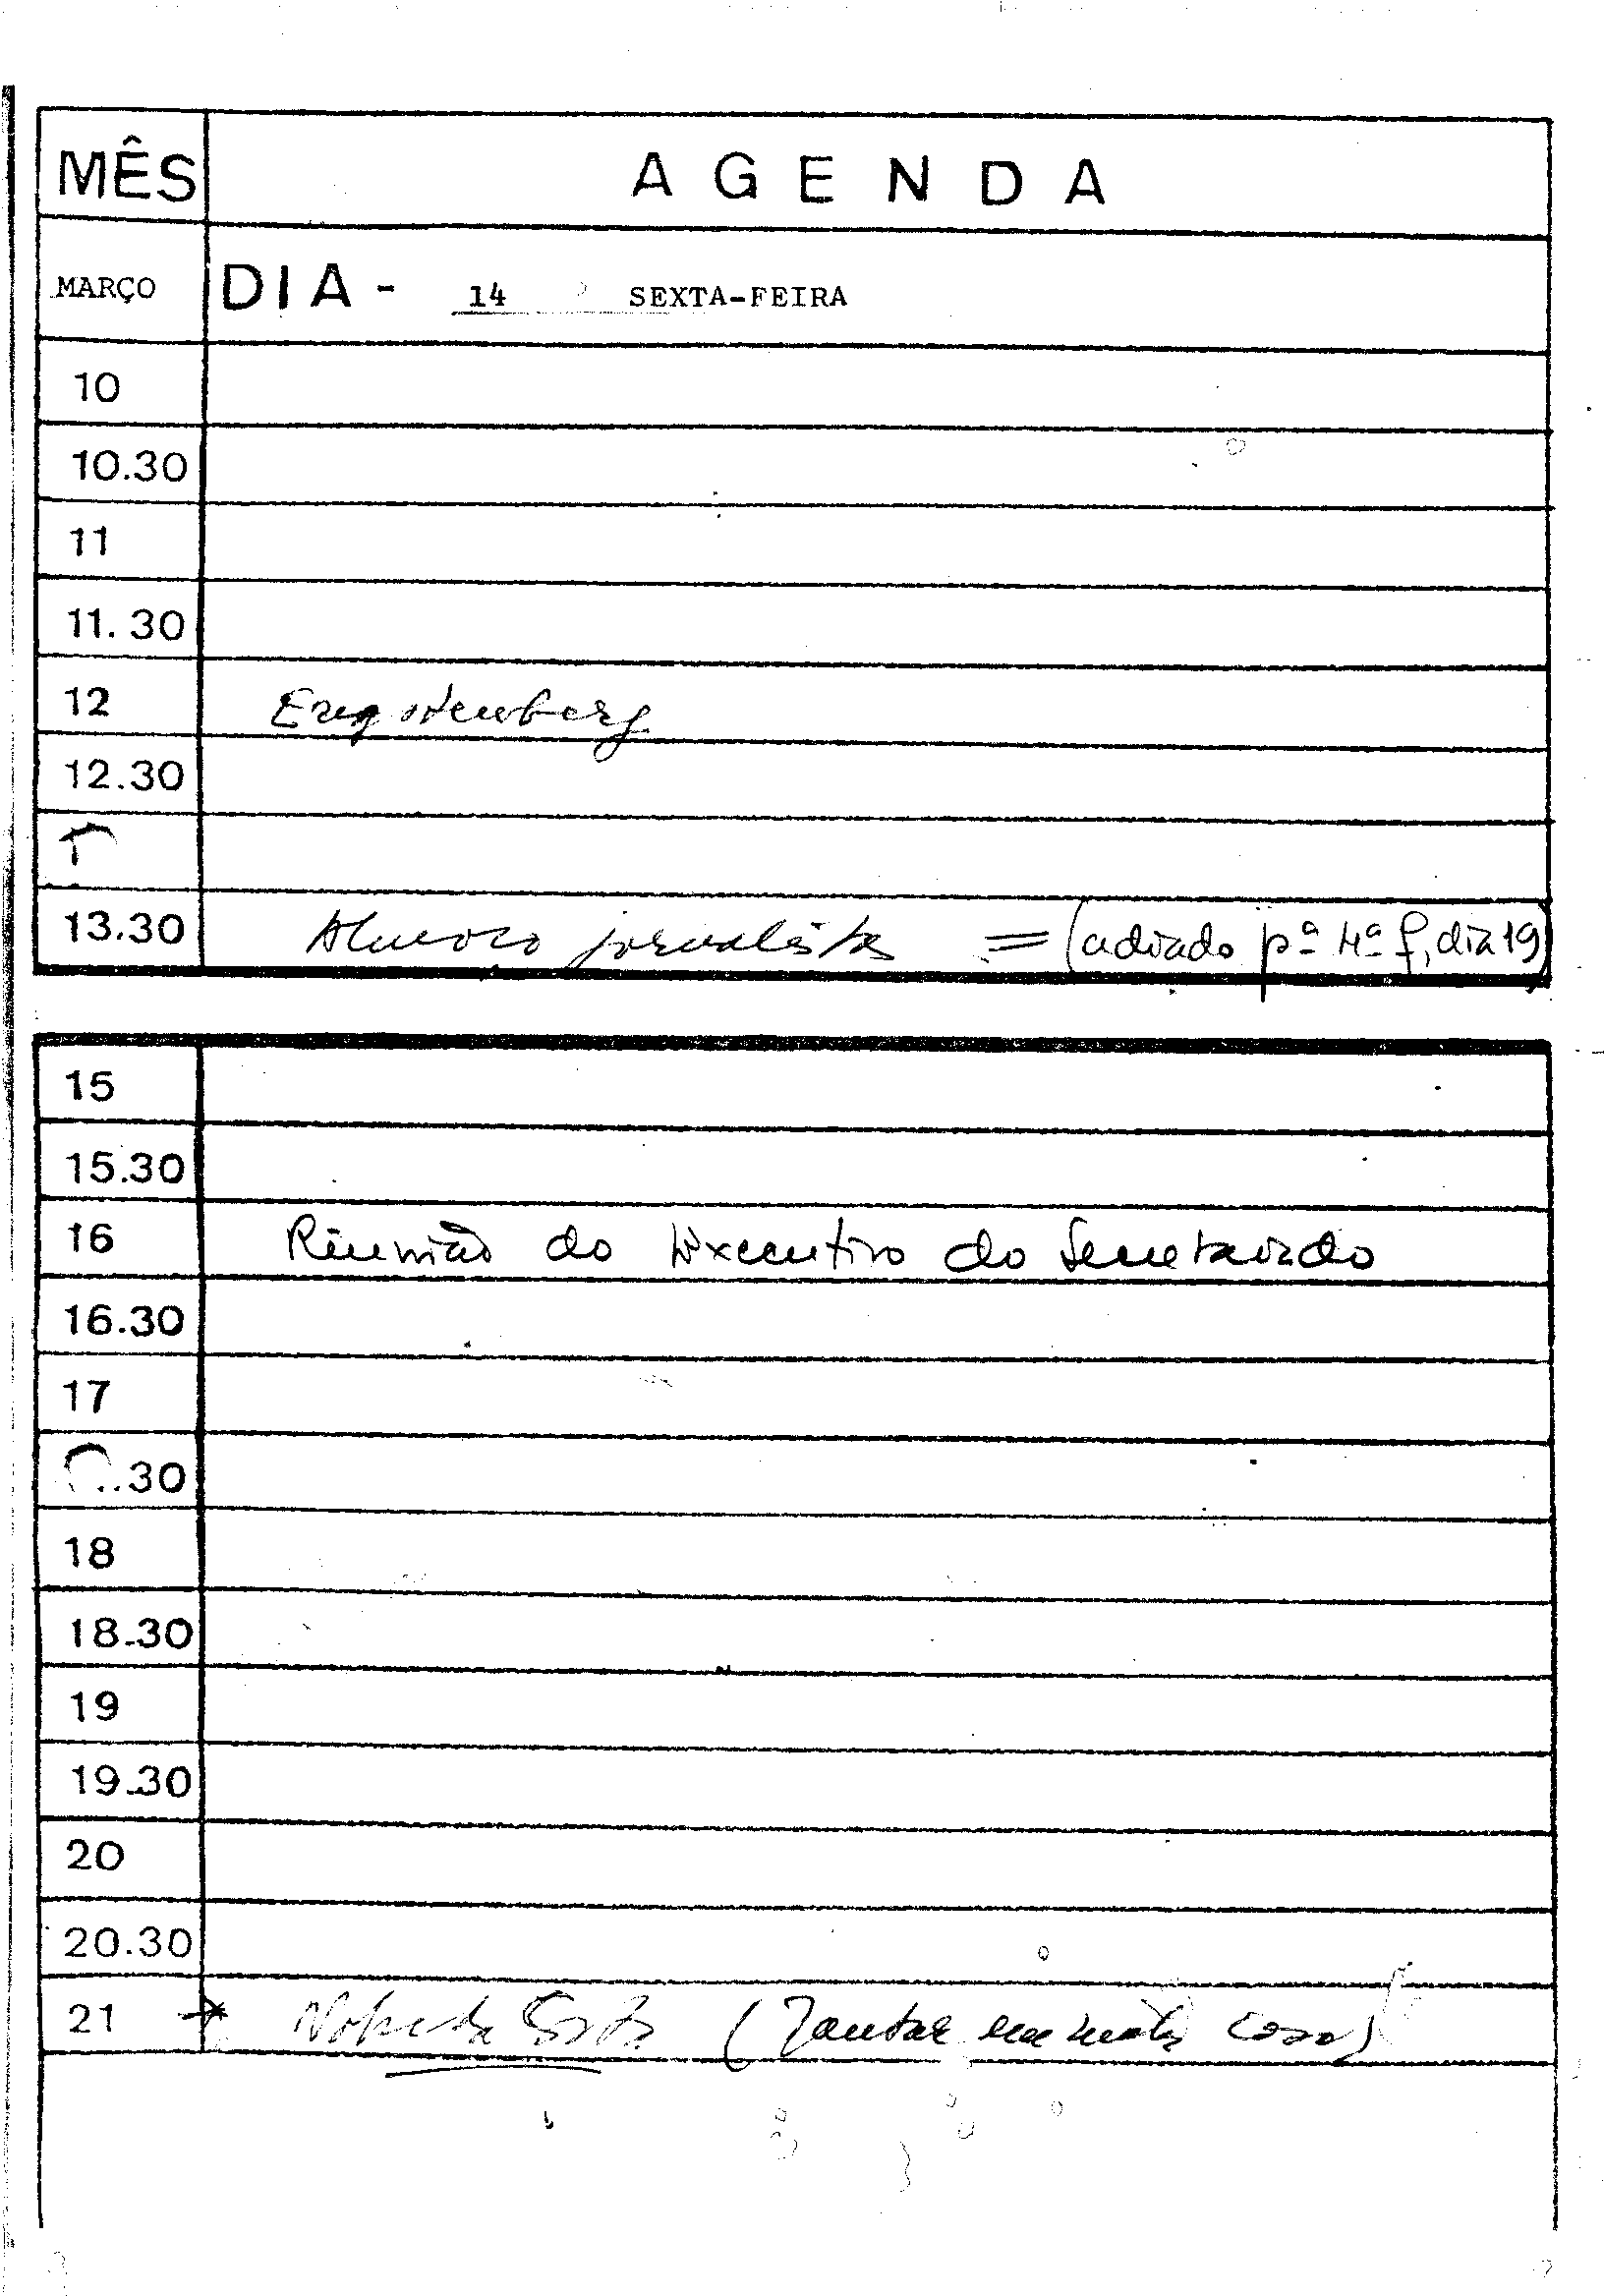 MÊS AGENDA
MARÇO DIA - 14 SEXTA-FEIRA
10
10.30
11
11.30
12
12.30
13.30 Almoço jornalista = (adiado pª 4ª f, dia 19)
15
15.30
16 Reunião do Executivo do Secretariado
16.30
17
.30
18
18.30
19
19.30
20
20.30
21 (Jantar em casa)